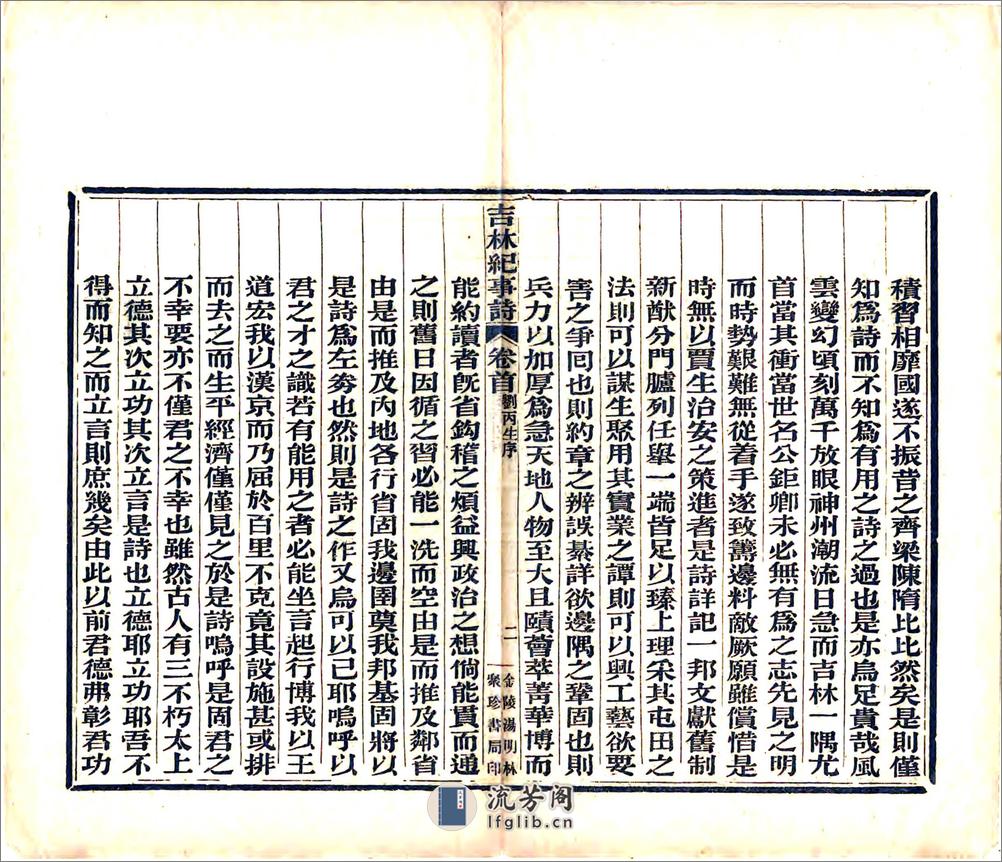 積習相靡國遂不振昔之齊梁陳隋比比然矣是則僅
知爲詩而不知爲有用之詩之過也是亦烏足貴哉風
雲變幻頃刻萬千放眼神州潮流日急而吉林一隅尤
首當其衝當世名公鉅卿未必無有爲之志先見之明
而時勢艱難無從着手遂致籌邊料敵厥願雖償惜是
時無以賈生治安之策進者是詩詳記一邦文獻舊制
新猷分門臚列任舉一端皆足以臻上理采其屯田之
法則可以謀生聚用其實業之譚則可以興工藝欲要
害之爭回也則約章之辨誤綦詳欲邊隅之鞏固也則
兵力以加厚爲急天地人物至大且賾薈萃菁華博而
吉林紀事詩 卷首 劉丙生序 二 金陵湯明林聚珍書局印
能約讀者旣省鈎稽之煩益興政治之想倘能貫而通
之則舊日因循之習必能一洗而空由是而推及鄰省
由是而推及內地各行省固我邊圉奠我邦基固將以
是詩爲左劵也然則是詩之作又烏可以已耶嗚呼以
君之才之識若有能用之者必能坐言起行博我以王
道宏我以漢京而乃屈於百里不克竟其設施甚或排
而去之而生平經濟僅僅見之於是詩嗚呼是固君之
不幸要亦不僅君之不幸也雖然古人有三不朽太上
立德其次立功其次立言是詩也立德耶立功耶吾不
得而知之而立言則庶幾矣由此以前君德弗彰君功
流芳阁
lfglib.cn